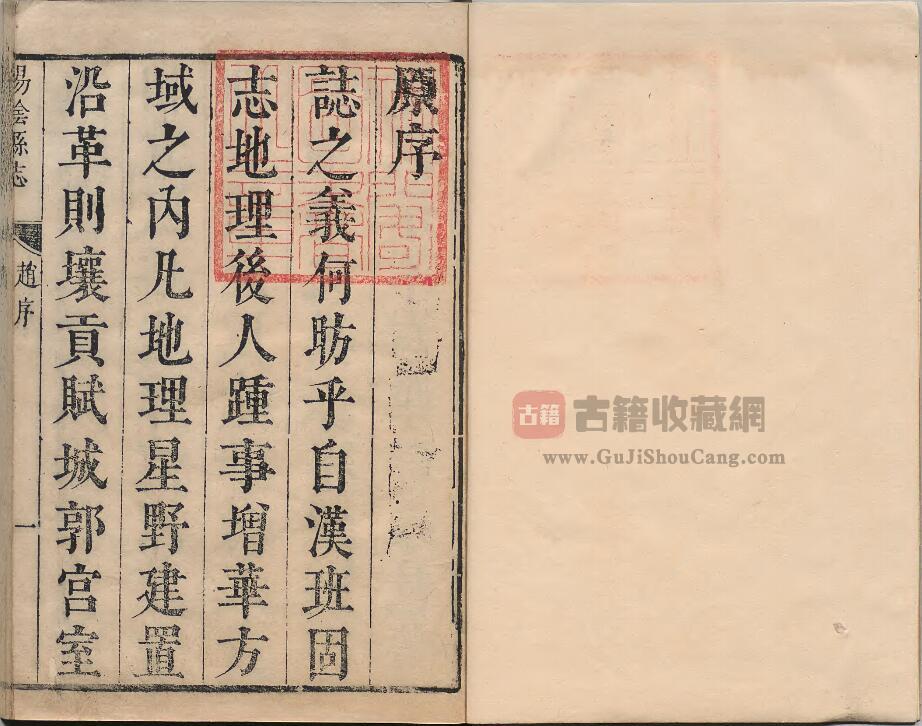 原序
誌之義何昉乎自漢班固
志地理後人踵事增華方
域之内凡地理星野建置
沿革則壤貢賦城郭宫室
湯陰縣志
趙序
一
古籍
古籍收藏網
www.GuJiShouCang.com